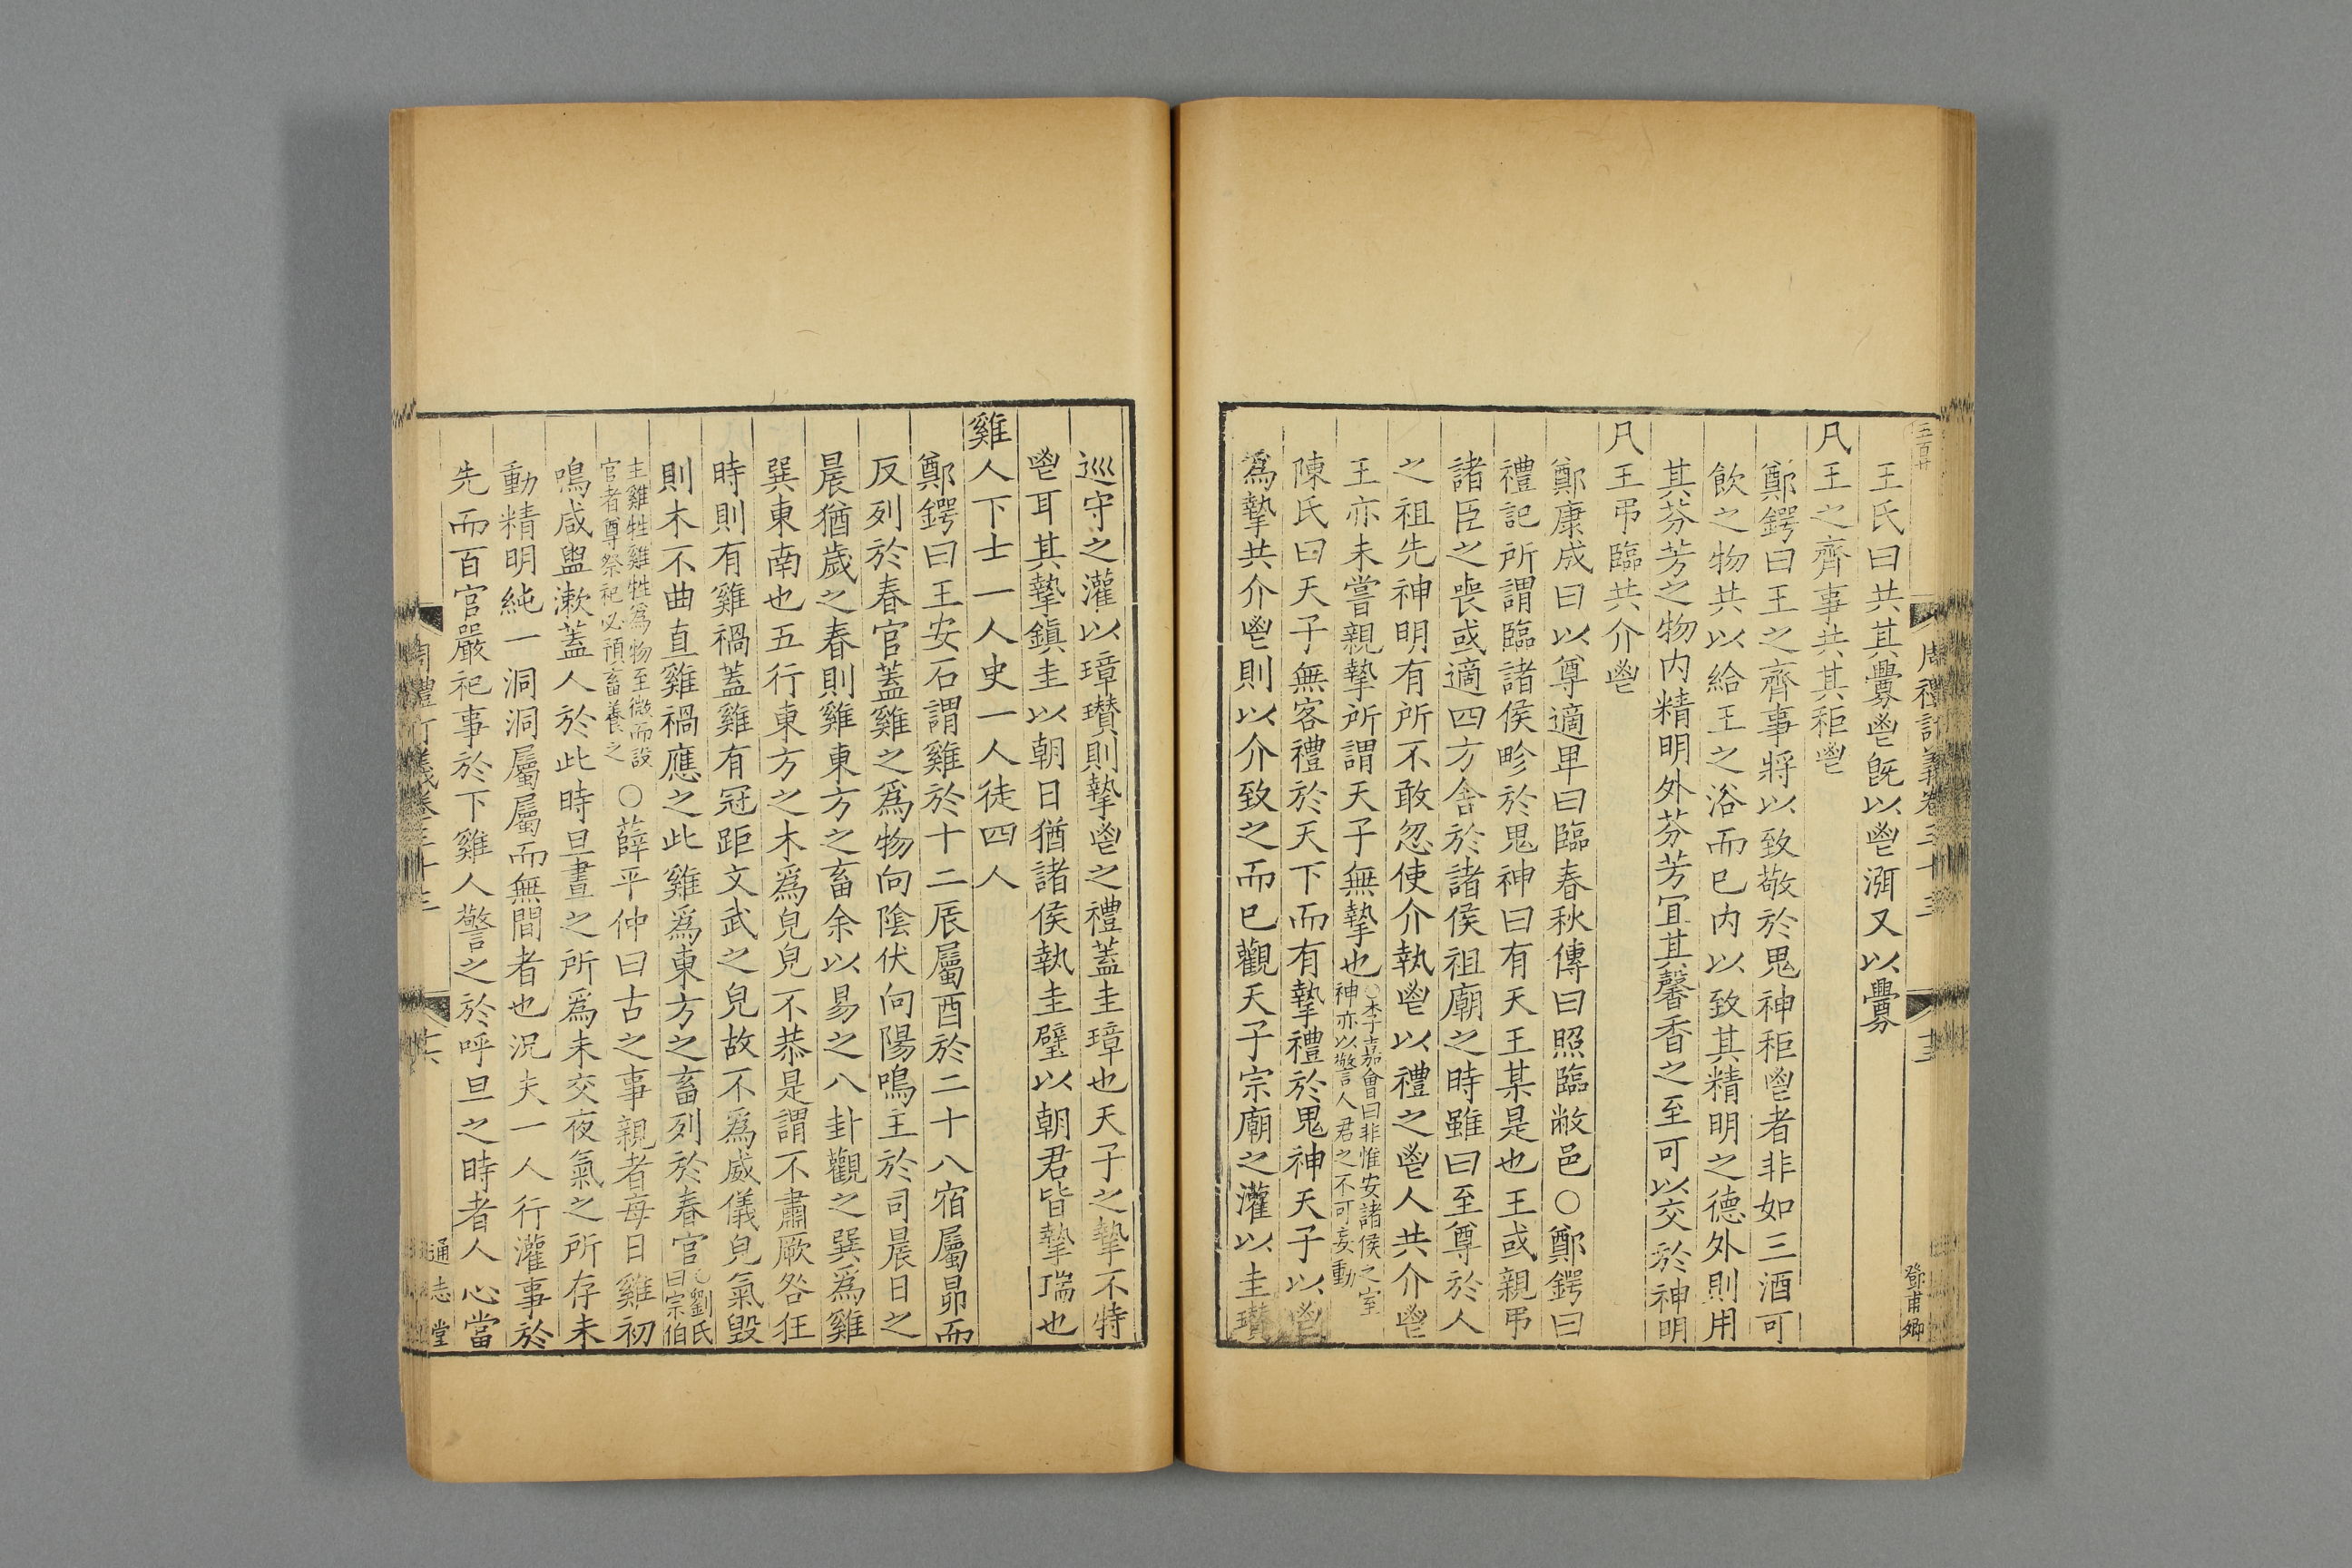 王氏曰共其釁鬯既以鬯洱又以釁
凡王之齊事共其秬鬯
鄭鍔曰王之齊事將以致敬於鬼神秬鬯者非如三酒可
飲之物共以給王之浴而已内以致其精明之德外則用
其芬芳之物内精明外芬芳冝其馨香之至可以交於神明
凡王弔臨共介鬯
鄭康成曰以尊適卑曰臨春秋傳曰照臨敝邑○鄭鍔曰
禮記所謂臨諸侯畛於鬼神曰有天王某是也王或親弔
諸臣之喪或適四方舍於諸侯祖廟之時雖曰至尊於人
之祖先神明有所不敢忽使介執鬯以禮之鬯人共介鬯
王亦未嘗親摯所謂天子無摯也○李嘉會曰非惟安諸侯之室
神亦以警人君之不可妄動
陳氏曰天子無客禮於天下而有摯禮於鬼神天子以鬯
爲摯共介鬯則以介致之而已觀天子宗廟之灌以圭瓚
周禮訂義卷三十三
鄧甫卿
巡守之灌以璋瓚則摯鬯之禮蓋圭璋也天子之摯不特
鬯耳其摯鎭圭以朝日猶諸侯執圭璧以朝君皆摯瑞也
雞人下士一人史一人徒四人
鄭鍔曰王安石謂雞於十二辰屬酉於二十八宿屬昴而
反列於春官蓋雞之爲物向陰伏向陽鳴主於司晨日之
晨猶歲之春則雞東方之畜余以易之八卦觀之巽爲雞
巽東南也五行東方之木爲皃皃不恭是謂不肅厥咎狂
時則有雞禍蓋雞有冠距文武之皃故不爲威儀皃氣毀
則木不曲直雞禍應之此雞爲東方之畜列於春官○劉氏
曰宗伯
主雞牲雞牲爲物至微而設
官者尊祭祀必預畜養之
○薛平仲曰古之事親者每日雞初
鳴咸盥漱蓋人於此時旦晝之所爲未交夜氣之所存未
動精明純一洞洞屬屬而無間者也況夫一人行灌事於
先而百官嚴祀事於下雞人警之於呼旦之時者人心當
通志堂